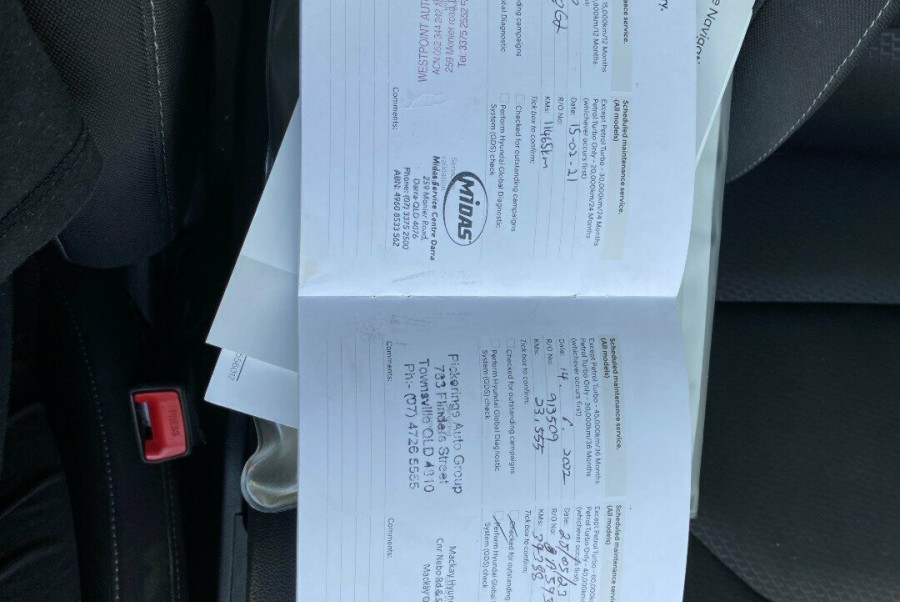 e Navigation
service.
15,000km/12 Months
,000km/12 Months
nding campaigns
Global Diagnostic
WESTPOINT AUT
259 Monier road
Scheduled maintenance service.
(All models)
Except Petrol Turbo - 30,000km/24 Months
Petrol Turbo Only - 20,000km/24 Months
(whichever occurs first)
Date: 15-02-21
R/O No:
KMs: 11465km
Tick box to confirm:
Checked for outstanding campaigns
Perform Hyundai Global Diagnostic
System (GDS) check
MIDAS
Midas Service Centre Darra
259 Monier Road,
Darra QLD 4076
Phone: (07) 3375 2500
ABN: 4960 8533 562
Comments:
Scheduled maintenance service.
(All models)
Except Petrol Turbo - 45,000km/36 Months
Petrol Turbo Only - 30,000km/36 Months
(whichever occurs first)
Date: 14. 2022
R/O No: 913509
KMs: 23,555
Tick box to confirm:
Checked for outstanding campaigns
Perform Hyundai Global Diagnostic
System (GDS) check
Pickerings Auto Group
783 Flinders Street
Townsville QLD 4810
Ph: (07) 4726 5555
Comments:
Scheduled maintenance service.
(All models)
Except Petrol Turbo - 60,000k
Petrol Turbo Only - 40,000k
(whichever occurs first)
Date: 25/05/23
R/O No:
KMs: 39788
Tick box to confirm:
Checked for outstanding
Perform Hyundai Global
System (GDS) check
Mackay Hyun
Cnr Nebo Rd & S
Mackay Q
Comments:
PRESS